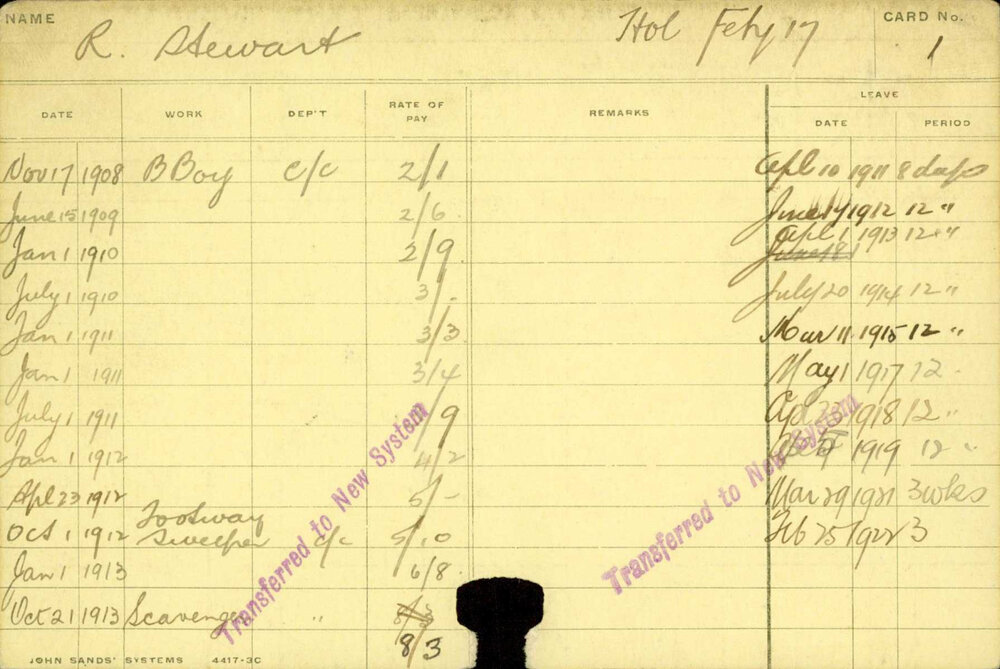 NAME R. Stewart Hol Feby 17 CARD No. 1
LEAVE
DATE WORK DEP'T RATE OF PAY REMARKS DATE PERIOD
Nov 17 1908 B Boy C/C 2/1 Apl 10 1911 8 days
June 15 1909 2/6. June 17 1912 12 "
Apl 1 1913 12 "
Jan 1 1910 2/9. June 18
July 1 1910 3/. July 20 1914 12 "
Jan 1 1911 3/3. Mar 11 1915 12 "
Jan 1 1911 3/4 May 1 1917 12.
July 1 1911 /9 Apl 1918 12 "
Jan 1 1912 4/2 1919 12 "
Apl 23 1912 5/- Mar 29 1921 3 wks
Oct 1 1912 Footway Sweeper C/C 5/10 Feb 25 1922 3
Jan 1 1913 6/8.
Oct 21 1913 Scavenger "
8/3
Transferred to New System
Transferred to New System
JOHN SANDS' SYSTEMS 4417-3C